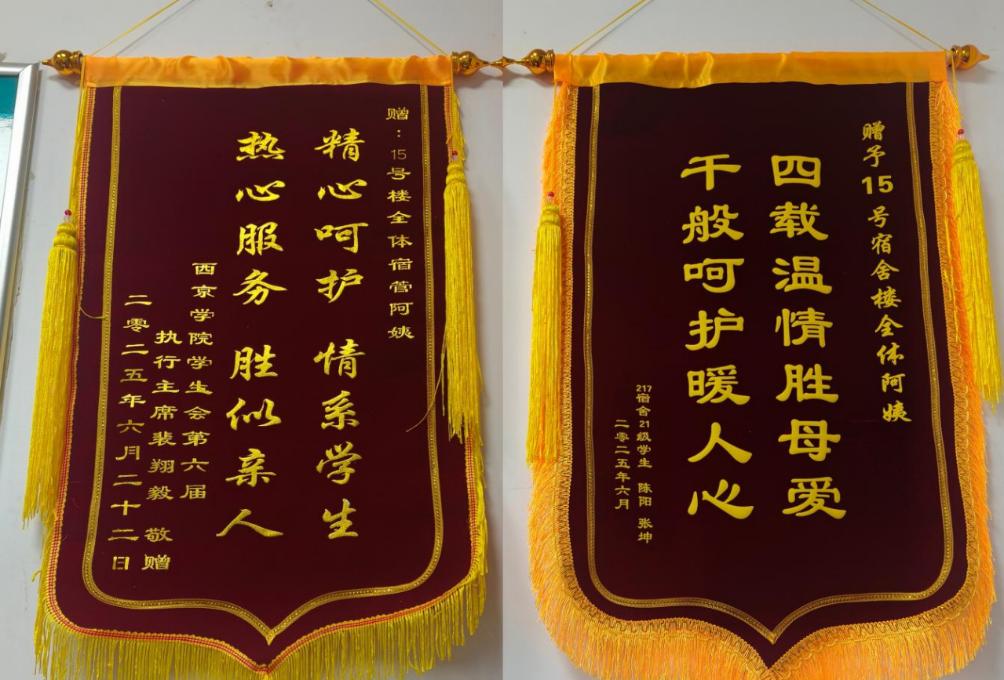 赠：15号楼全体宿管阿姨
精心呵护 情系学生
热心服务 胜似亲人
西京学院学生会第六届
执行主席裴翔毅 敬赠
二零二五年六月二十二日
赠予15号宿舍楼全体阿姨
四载温情胜母爱
千般呵护暖人心
217宿舍21级学生 陈阳 张坤
二零二五年六月